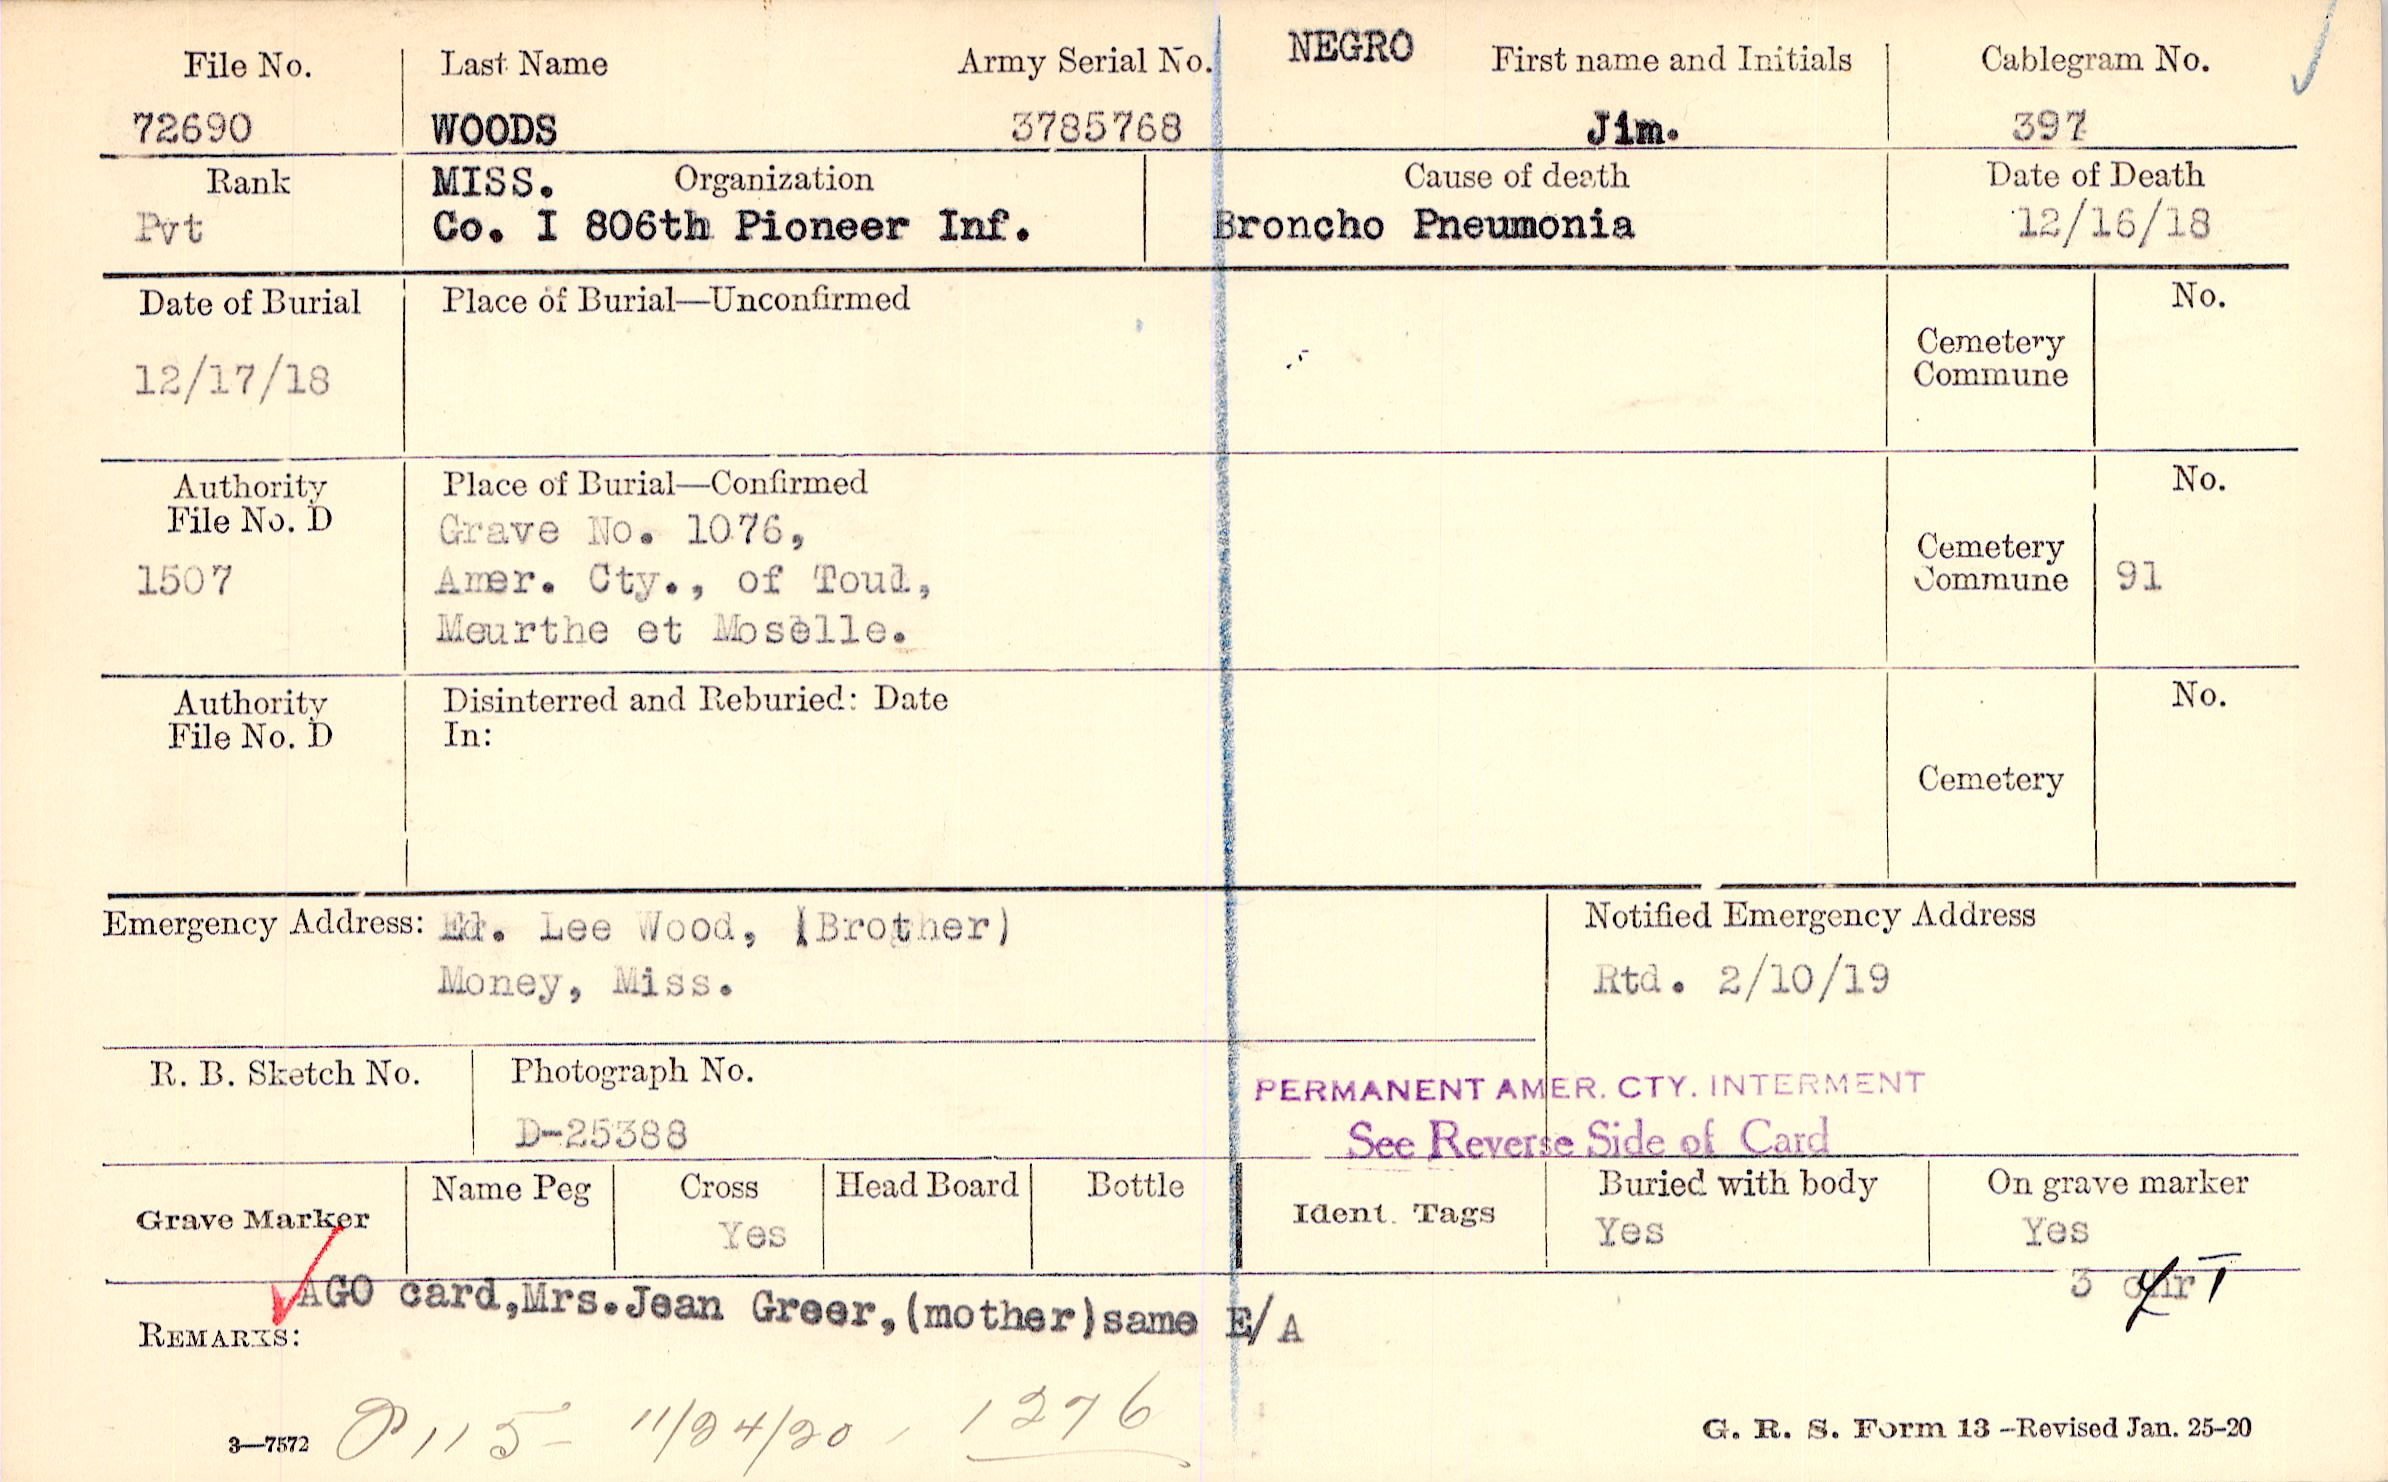 File No. Last Name Army Serial No. NEGRO First name and Initials Cablegram No.
72690 WOODS 3785768 Jim. 397
Rank MISS. Organization Cause of death Date of Death
Pvt Co. I 806th Pioneer Inf. Broncho Pneumonia 12/16/18
Date of Burial Place of Burial—Unconfirmed No.
Cemetery
Commune
12/17/18
Authority Place of Burial—Confirmed No.
File No. D Grave No. 1076,
Cemetery
1507 Amer. Cty., of Toul, Commune 91
Meurthe et Moselle.
Authority Disinterred and Reburied: Date No.
File No. D In:
Cemetery
Emergency Address: Ed. Lee Wood, (Brother) Notified Emergency Address
Money, Miss. Rtd. 2/10/19
R. B. Sketch No. Photograph No. PERMANENT AMER. CTY. INTERMENT
D-25388 See Reverse Side of Card
Grave Marker Name Peg Cross Head Board Bottle Ident. Tags Buried with body On grave marker
Yes Yes Yes
3
AGO card,Mrs.Jean Greer,(mother)same E/A
REMARKS:
3—7572 P115- 11/24/20 1276 G. R. S. Form 13 -Revised Jan. 25-20